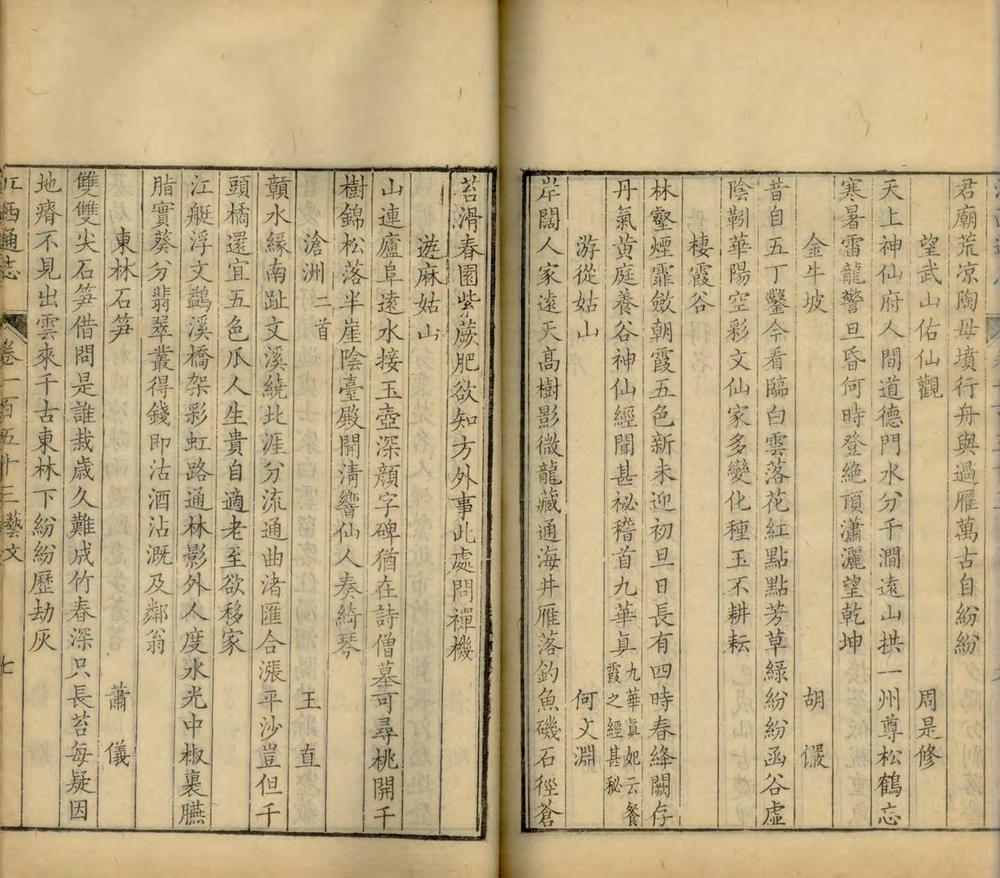 君廟荒凉陶母墳行舟與過雁萬古自紛紛
望武山佑仙觀　周是修
天上神仙府人間道德門水分千澗遠山拱一州尊松鶴忘
寒暑雷龍警旦昏何時登絶頂瀟灑望乾坤
金牛坡　胡儼
昔自五丁鑿今看臨白雲落花紅點點芳草綠紛紛函谷虛
陰靷華陽空彩文仙家多變化種玉不耕耘
棲霞谷
林壑煙霏斂朝霞五色新未迎初旦日長有四時春絳闕存
丹氣黃庭養谷神仙經聞甚祕稽首九華真九華真妃云餐霞之經甚秘
游從姑山　何文淵
岸闊人家遠天高樹影微龍藏通海井雁落釣魚磯石徑蒼
苔滑春園紫蕨肥欲知方外事此處問禪機
遊麻姑山
山連廬阜遠水接玉壺深顔字碑猶在詩僧墓可尋桃開千
樹錦松落半崖陰臺殿聞淸響仙人奏綺琴
滄洲二首　王直
贛水緣南趾文溪繞北涯分流通曲渚匯合漲平沙豈但千
頭橘還宜五色瓜人生貴自適老至欲移家
江艇浮文鷁溪橋架彩虹路通林影外人度水光中椒裏臙
脂實葵分翡翠叢得錢即沽酒沾溉及鄰翁
東林石笋　蕭儀
雙雙尖石笋借問是誰栽歳久難成竹春深只長苔每疑因
地瘠不見出雲來千古東林下紛紛歷劫灰
江西通志　卷一百五十三藝文　七